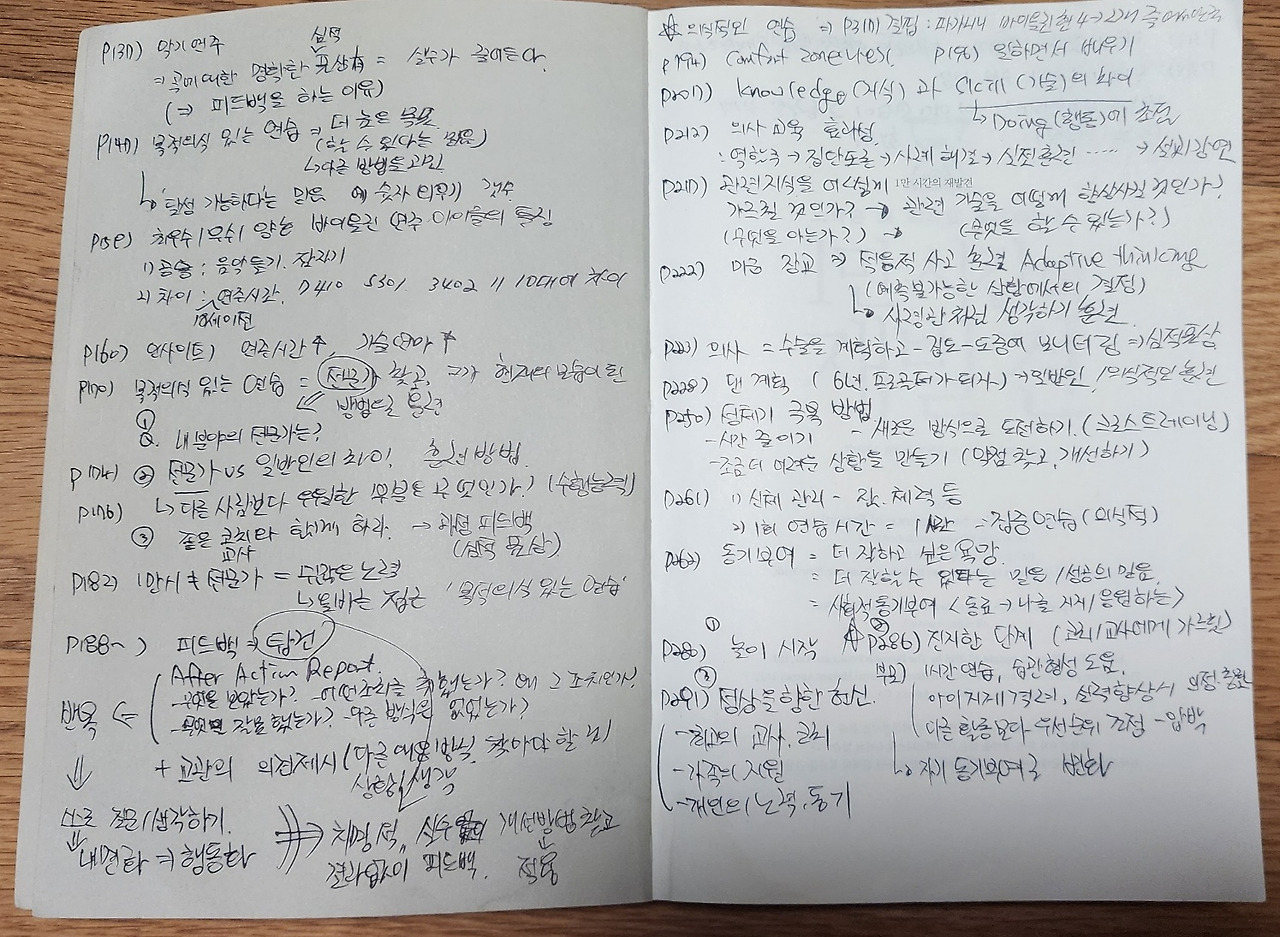 P137) 악기 연주
심적
⇒ 곡에 대한 명확한 표상有 = 실수가 줄어든다.
(⇒ 피드백을 하는 이유)
P147) 목적의식 있는 연습 ⇒ 더 높은 목표
(할 수 있다는 믿음)
↳ 다른 방법을 고민
↳ '달성 가능하다'는 믿음 예 숫자 외우기 갯수
최우수/우수/양호 바이올린 연주 아이들의 특징
1) 공통 : 음악듣기. 잠자기
2) 차이 : 연주시간. 7410 5301 3402 // 10대에 차이
18세 이전
P160) 인사이트) 연주시간↑, 기술연마↑
P170) 목적의식 있는 연습 = 전문가 찾고, 그가 현재의 모습이 된
방법으로 훈련
① Q. 내 분야의 전문가는?
P174) ② 전문가 vs 일반인의 차이! 훈련 방법.
P176) ↳ 다른 사람보다 우월한 부분은 무엇인가? (수행능력)
③ 좋은 코치와 함께 하라. → 관련 피드백
교사 (심적 표상)
P182) 1만시 ≠ 전문가 = 수많은 노력
↳ 올바른 접근 '목적의식 있는 연습'
P188~) 피드백 → 탑건
After Action Report.
- 무엇을 보았는가? - 어떤 조치를 취했는가? 왜 그 조치인가?
- 무엇을 잘못 했는가? - 다른 방식은 없었는가?
반복 ⇐
+ 교관의 의견제시 (다른 대응 방식, 찾아야 할 것
상황, 생각
스스로 질문/생각하기.
⇓
내면화 ⇒ 행동화
⇒ 치명적, 실수 개선방법 찾고
결과 없이 피드백. 적용
☆ 의식적인 연습 ⇒ P317) 결핍 : 파가니니 바이올린 현 4→2개 곡
P194) Comfort zone 나오기. P196) 일하면서 배우기
P207) Knowledge (지식) 과 (기술)의 차이
↳ Doing (행동)에 초점
P212) 의사 교육 효과성
: 역할극 → 집단토론 → 사례 해결 → 실전훈련 ..... → 설치강연
P217) 관련지식을 어떻게 1만 시간의 재발견
가르칠 것인가? → 관련 기술을 어떻게 향상시킬 것인가?
(무엇을 아는가?) → (무엇을 할 수 있는가?)
P222) 미군 장교 ⇒ 적응적 사고 훈련 Adaptive thinking
(예측불가능한 상황에서의 결정)
↳ 사령관처럼 생각하기 훈련
P223) 의사 = 수술을 계획하고 - 검토 - 도중에 모니터링 ⇒ 심적표상
P228) 댄 계획 (6년. 프로골퍼가 되자) → 일반인 / 의식적인 훈련
P250) 정체기 극복 방법
- 시간 줄이기 - 새로운 방식으로 도전하기. (크로스트레이닝)
- 조금 더 어려운 상황을 만들기 (약점 찾고, 개선하기)
P261) 1) 신체 관리 - 잠. 체력 등
2) 1회 연습 시간 = 1시간 → 집중 연습 (의식적)
P262) 동기부여 = 더 잘하고 싶은 욕망.
= 더 잘할 수 있다는 믿음 / 성공의 믿음.
= 사회적 동기부여 <동료 → 나를 지지/응원하는>
① P280) 놀이 시작 ② P286) 진지한 단계 (코치/교사에게 가르침)
부모) 1시간 연습, 습관 형성 도움.
③ P291) 정상을 향한 헌신.
- 최고의 교사. 코치
- 가족의 지원
- 개인의 노력. 동기
다른 활동보다 우선순위 조정 - 압박
↳ 자기 동기부여로 변화